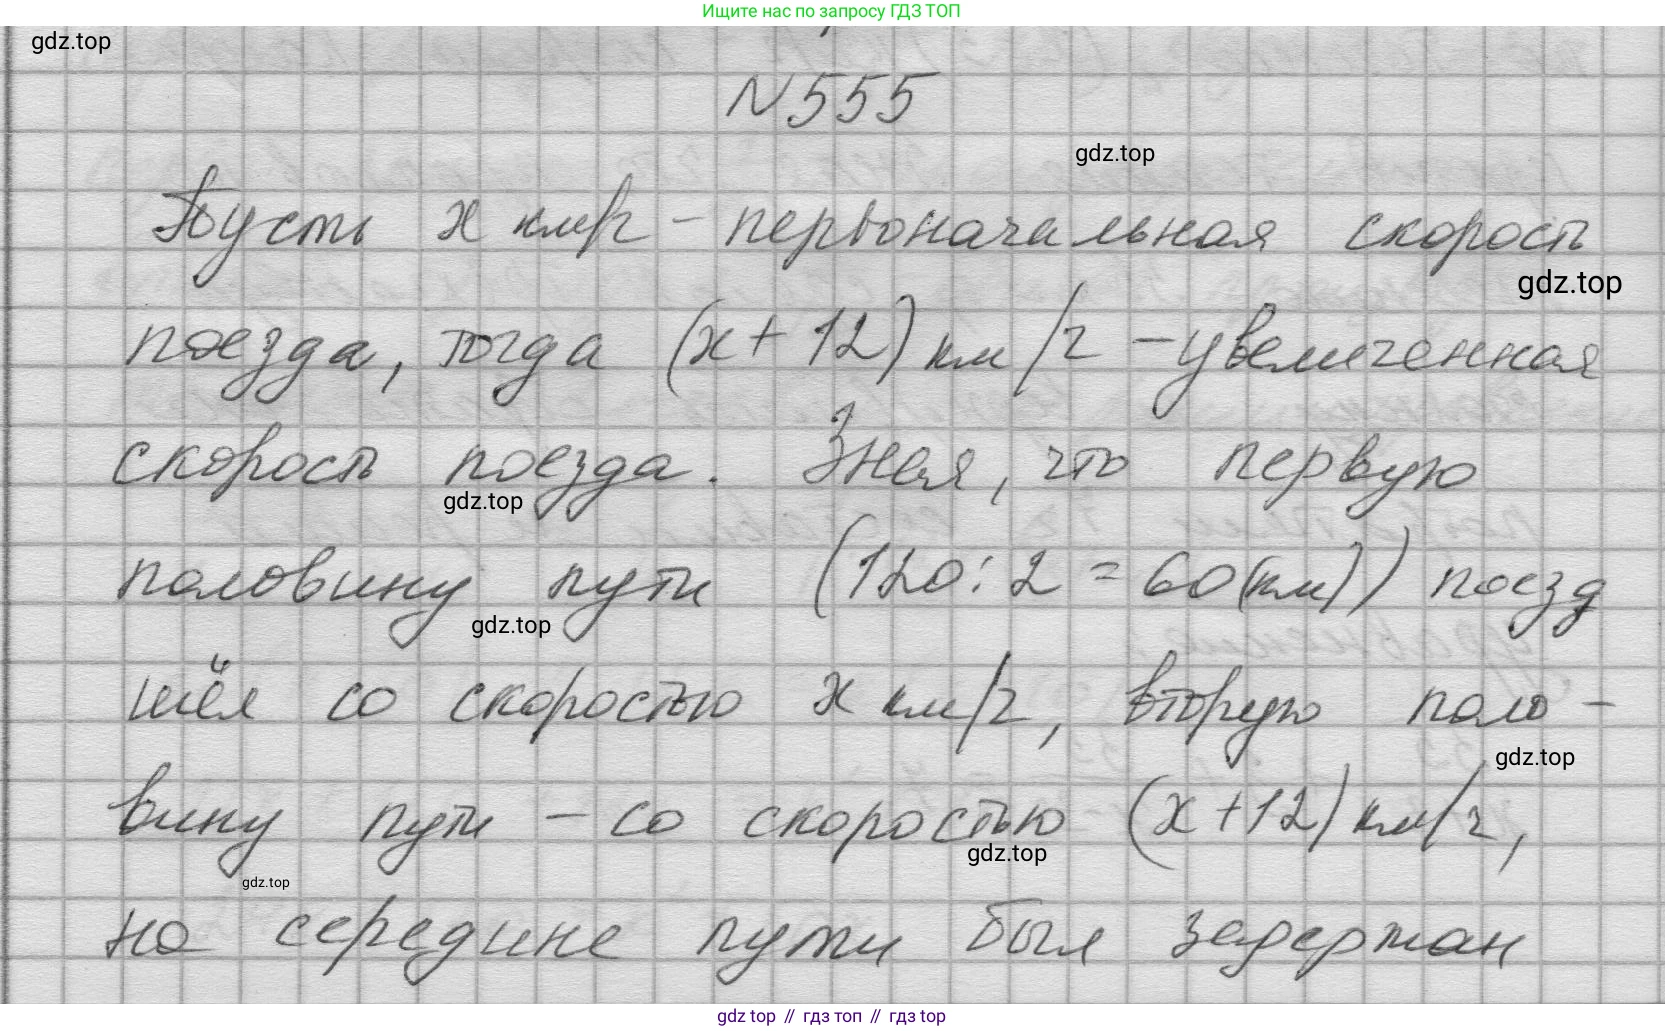 Ищите нас по запросу ГДЗ ТОП
gdz.top
N 555
gdz.top
Пусть x км/ч - первоначальная скорость
gdz.top
поезда, тогда (x + 12) км/ч - увеличенная
скорость поезда. Зная, что первую
gdz.top
половину пути (120 : 2 = 60 (км)) поезд
gdz.top
шёл со скоростью x км/ч, вторую поло-
gdz.top
вину пути - со скоростью (x + 12) км/ч,
gdz.top
gdz.top
на середине пути был задержан
gdz top // гдз топ // gdz top